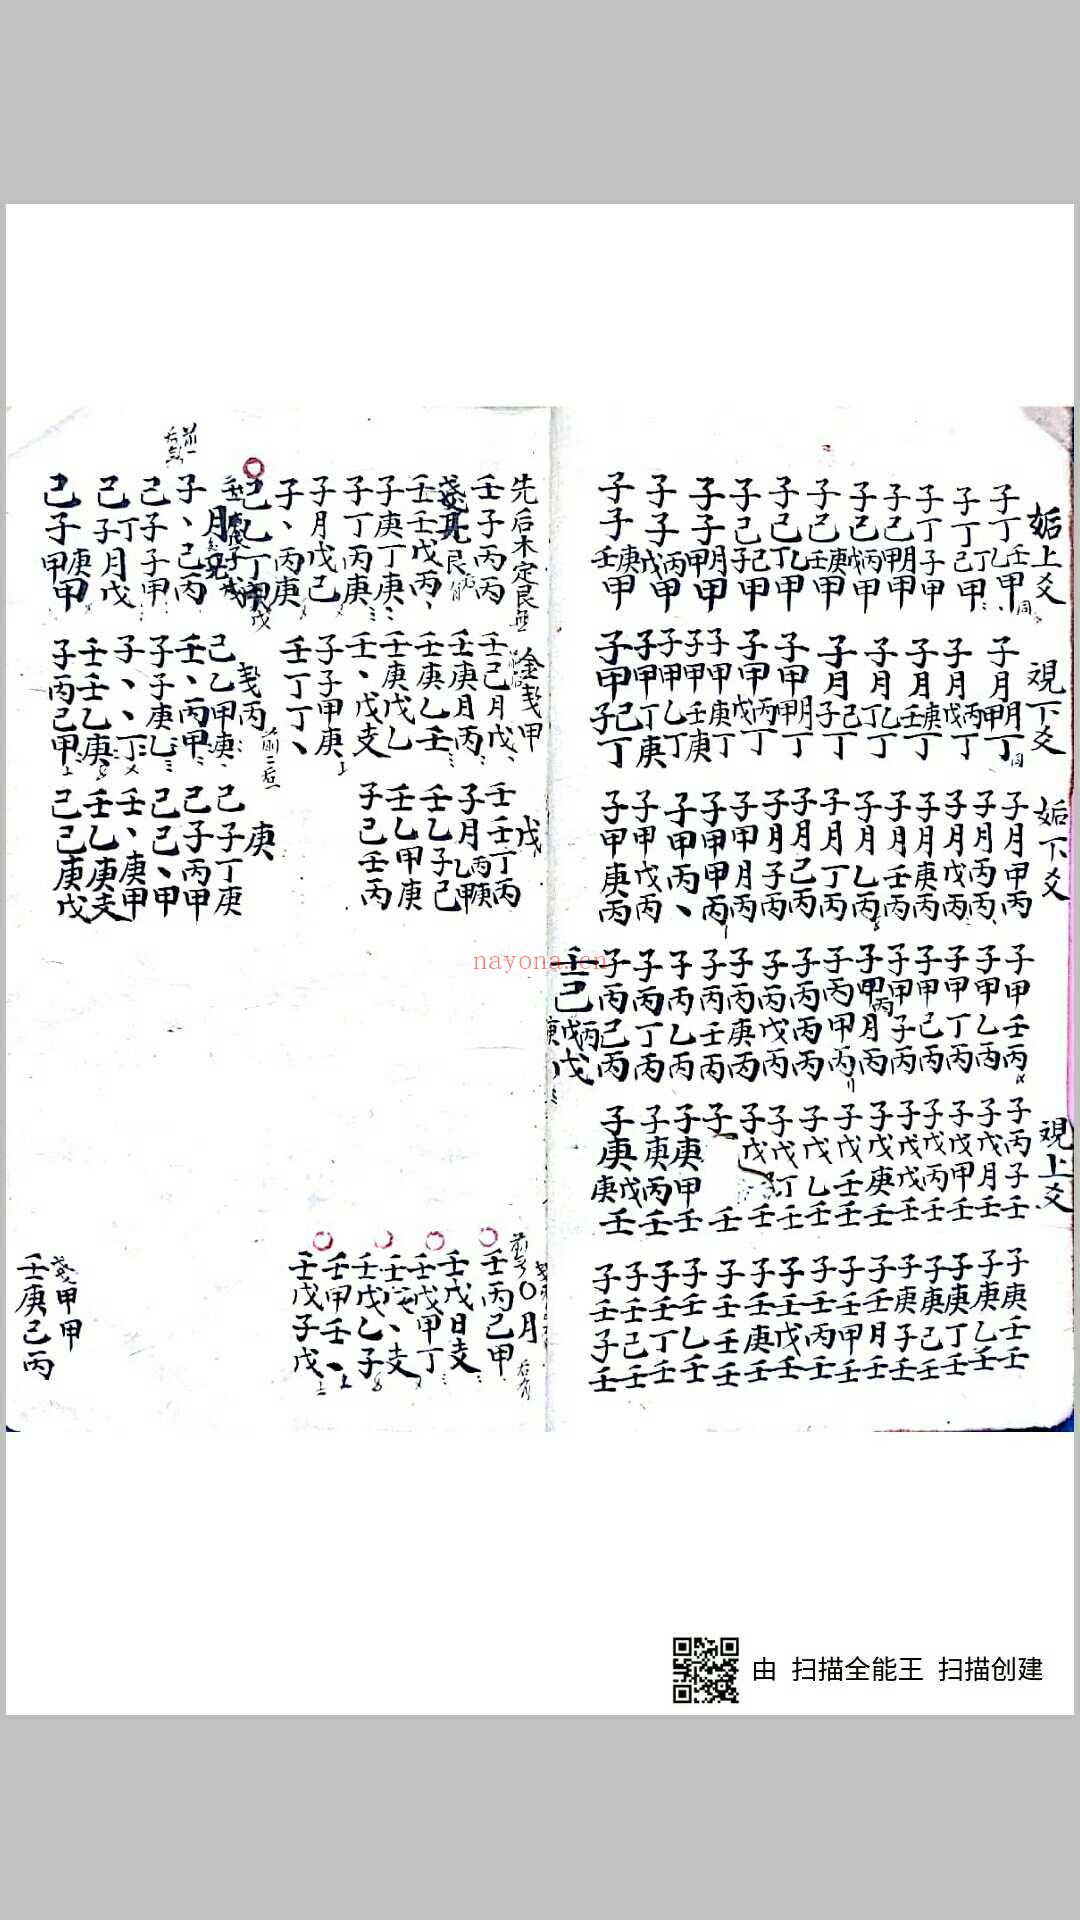 姤上爻
子丁壬甲
子丁乙丁甲
子丁己甲
子丁子甲
子己月甲甲
子己丙戊甲
子己庚壬甲
子己乙丁甲
子己己子甲
子子月甲甲
子子丙戊甲
子子庚壬甲
覌下爻
子月月甲丁
子月丙戊丁
子月庚壬丁
子月乙丁丁
子月己子丁
子甲月甲丁
子甲丙戊丁
子甲庚壬
子甲乙丁
子甲丁庚
子甲己子丁
姤下爻
子月甲丙
子月丙丙
子月戊丙
子月庚丙
子月壬丙
子月乙丙
子月丁丙
子月己丙
子月子丙
子甲月丙
子甲甲丙
子甲丙丶
子甲戊丙
子甲庚丙
子甲壬丙
子甲乙丙
子甲丁丙
子甲己丙
子甲子丙
子甲丙月丙
子丙甲丙
子丙丙丙
子丙戊丙
子丙庚丙
子丙壬丙
子丙乙丙
子丙丁丙
子丙己丙
壬己丙戊戊
覌上爻
子丙子壬
子戊月壬
子戊甲壬
子戊丙壬
子戊戊壬
子戊庚壬
子戊壬壬
子戊乙壬
子戊丁壬
子戊壬
子壬
子庚甲壬
子庚丙壬
子庚戊庚壬
子庚壬壬
子庚乙壬
子庚丁壬
子庚己壬
子庚子壬
子壬月壬
子壬甲壬
子壬丙壬
子壬戊壬
子壬庚壬
子壬壬壬
子壬乙壬
子壬丁壬
子壬己壬
子壬子壬
先后木定艮
壬子丙丙
壬壬戊丙丶
子庚丁庚丶
子丁丙庚
子月戊己
子丶丙庚
子丶己丙
己子子甲
己丁子月戊
己子庚甲甲
前一
金戋甲
壬己月戊
壬庚月丙
壬庚乙壬
壬庚戊乙
壬丶戊支
子子甲庚
壬丁丁丶
戋丙
己乙甲庚
壬丶丙甲
子子庚乙
子丶丶丁
壬壬乙庚
子丙己甲
前二后一
戊
壬壬丁丙
子月丙乙庚甲
壬乙子己
壬乙甲庚
子己壬丙
庚
己子丁庚
己子丙甲
己己丶甲
壬丶庚甲
壬乙庚支
己己庚戊
月
壬丙己甲
壬戊日支
壬戊甲丁
壬戊乙子
壬甲壬丶
壬戊子戊
甲甲
壬庚己丙
nayona.cn
由 扫描全能王 扫描创建